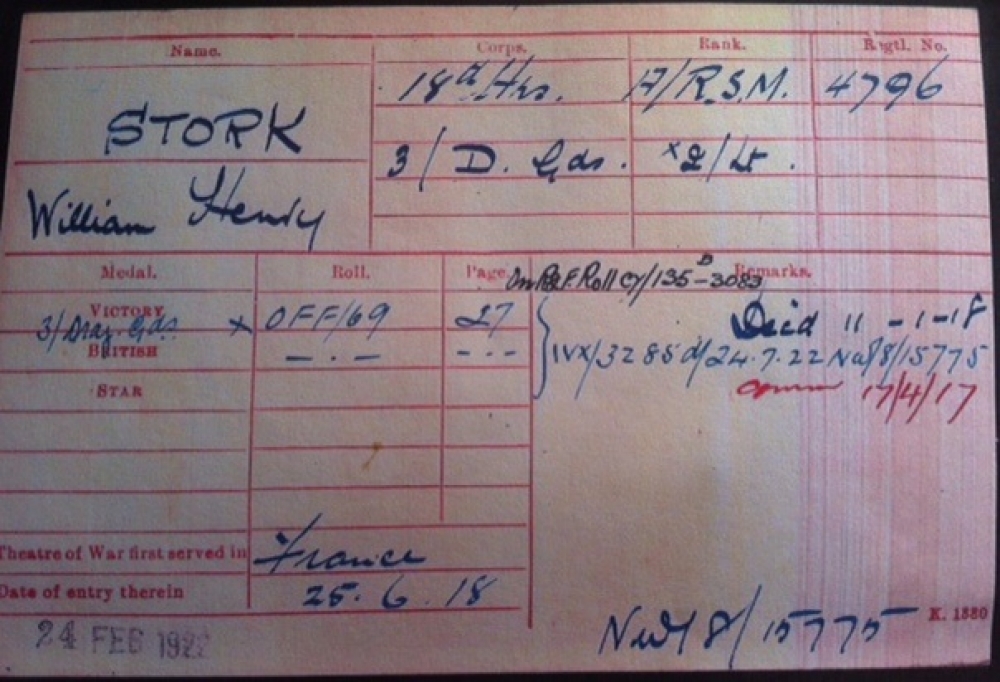 Name. Corps. Rank. Regtl. No.
STORK 18th Hrs. A/R.S.M. 4796
William Henry 3/D. Gds. x2/Lt.
Medal. Roll. Page. Remarks.
On Roll CY/135 B-3083
VICTORY
3/Drag. Gds. x OFF/69 27 Died 11-1-18
BRITISH -.- -.- IVX/3285 d/24.7.22 NW/8/15775
STAR 17/4/17
Theatre of War first served in France
Date of entry therein 25.6.18
24 FEB 1922 NW/8/15775 K. 1380